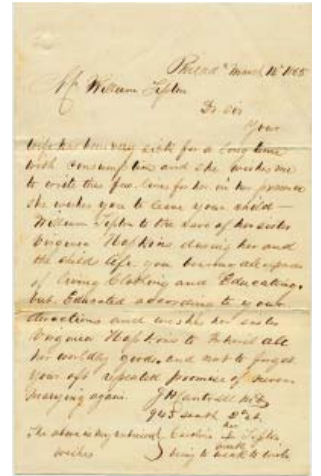 Philad<sup>a</sup> March 12<sup>th</sup> 1865
Mr William Tipton
Dr Sir
Your
wife has been very sick for a long time
with consumption and she wishes me
to write this few lines for her in her presence
she wishes you to leave your child —
William Tipton to the care of her sister
Virginia Hopkins during her and
the childs life you bearing all expenses
of living Clothing and Educating.
but Educated according to your
directions and wishes her sister
Virginia Hopkins to Inherit all
her worldly goods. and not to forget
your oft repeated promise of never
marrying again. J H Cantrell M.D.
943 south 2<sup>d</sup> st.
The above is my
wishes
Caroline her + mark Tipton
being to weak to write